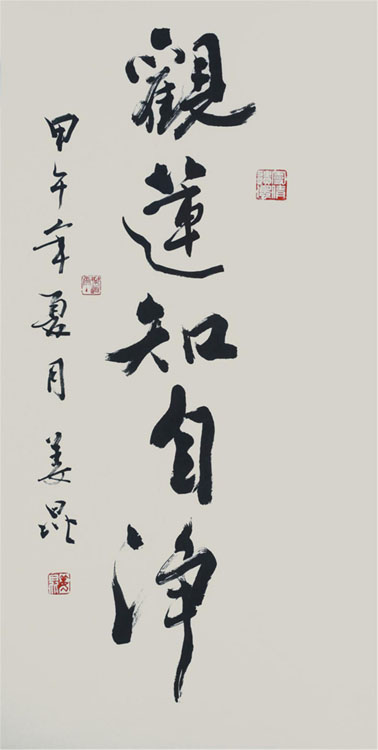 觀蓮知自净
甲午年夏月姜昆